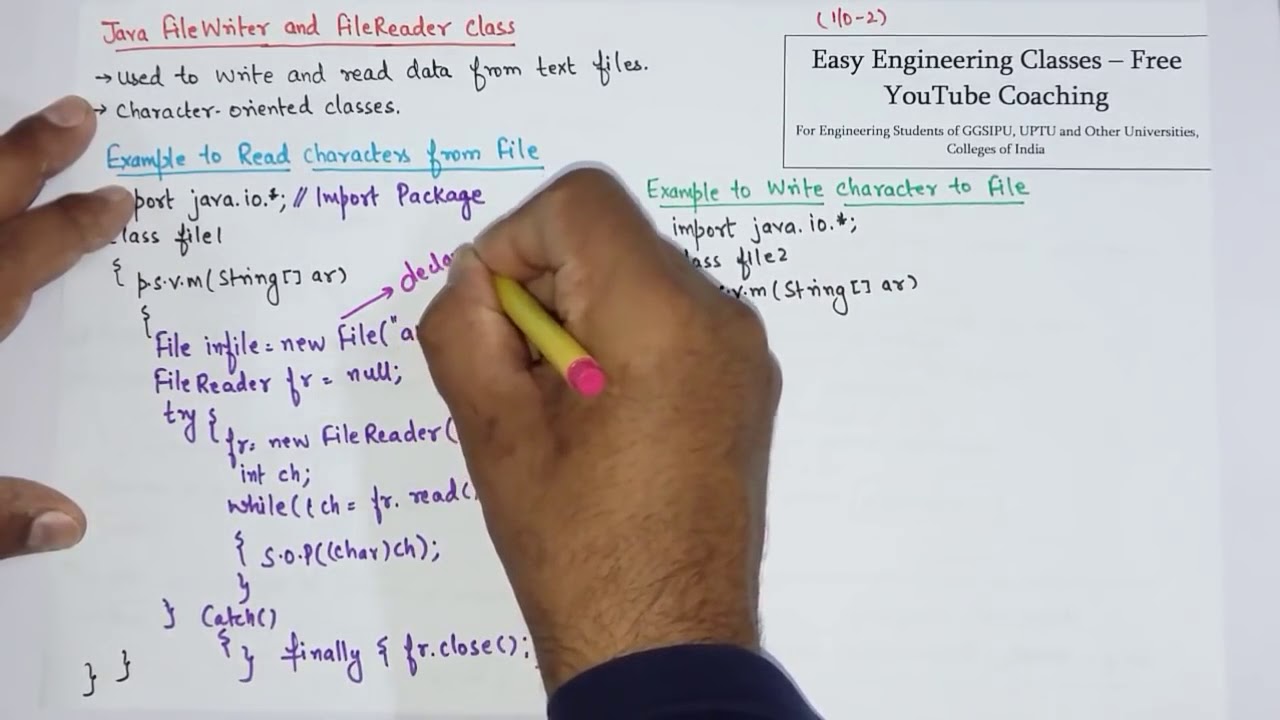 Java FileWriter and FileReader Class
→ Used to write and read data from text files.
→ Character-oriented classes.
Example to Read Characters from File
port java.io.*; // Import Package
lass file1
{ p.s.v.m(String[] ar)
{
File infile = new File("a
FileReader fr = null;
try {
fr= new FileReader(
int ch;
while((ch = fr. read(
{ S.O.P((char)ch);
}
} Catch()
{
} finally { fr.close();
} }
(I/O-2)
Easy Engineering Classes – Free
YouTube Coaching
For Engineering Students of GGSIPU, UPTU and Other Universities,
Colleges of India
Example to Write character to File
import java.io.*;
lass file2
.v.m (String[] ar)